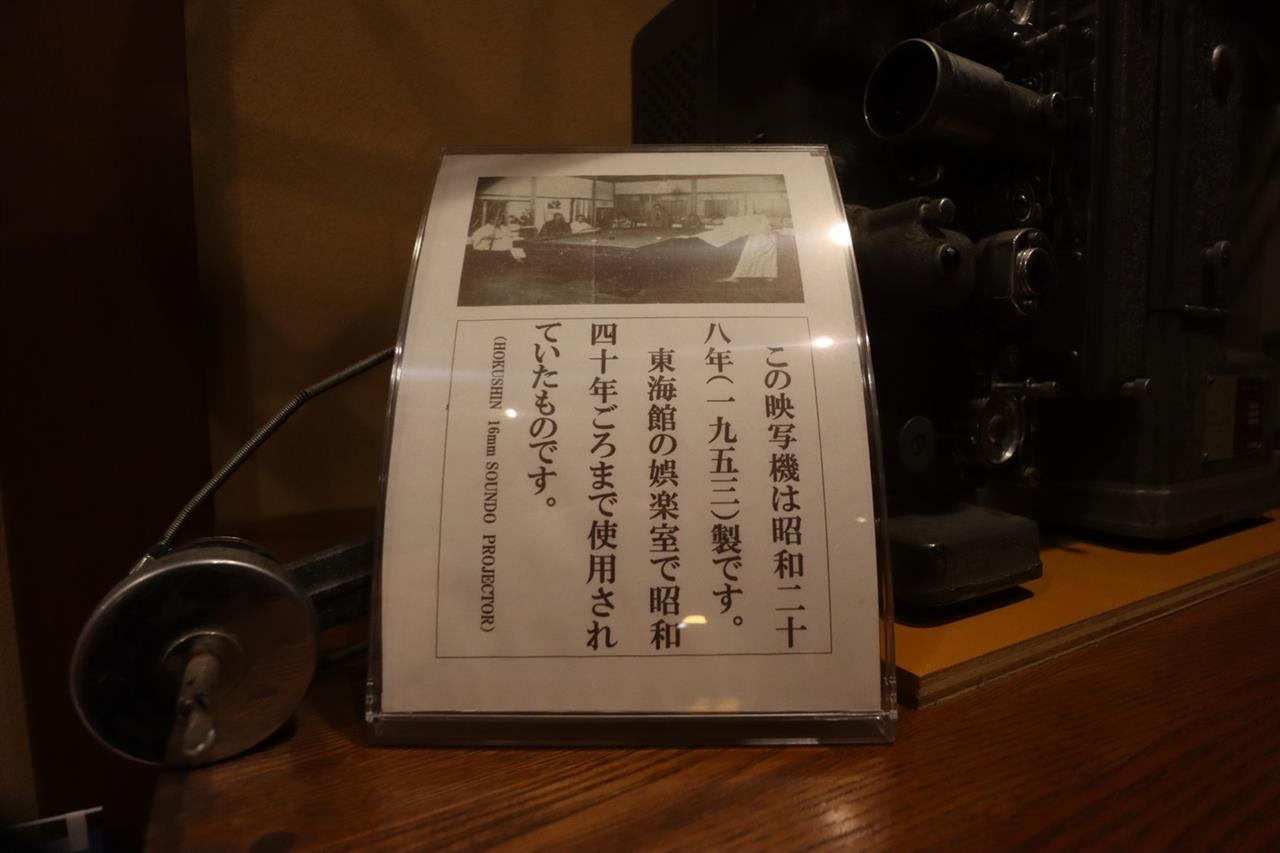 この映写機は昭和二十
八年(一九五三)製です。
東海館の娯楽室で昭和
四十年ごろまで使用され
ていたものです。
(HOKUSHIN 16mm SOUNDO PROJECTOR)